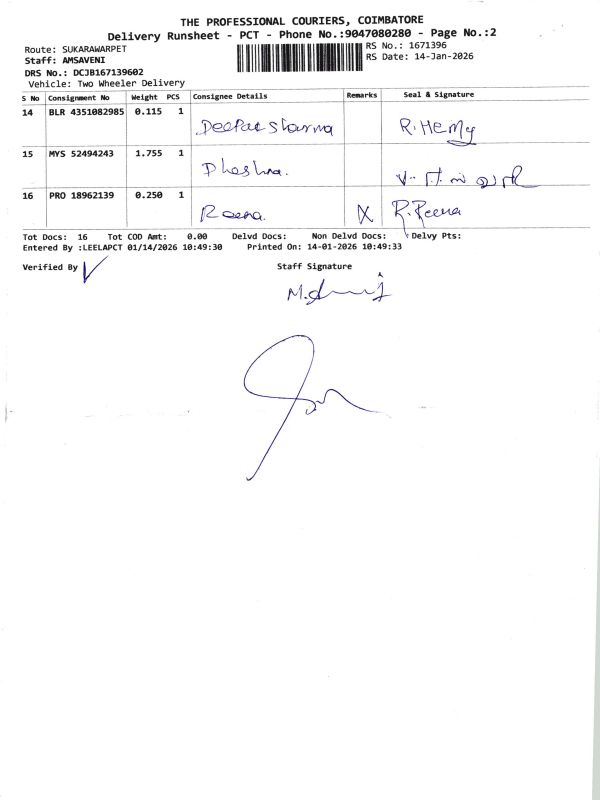 THE PROFESSIONAL COURIERS, COIMBATORE
Delivery Runsheet - PCT - Phone No.:9047080280 - Page No.:2
Route: SUKARAWARPET
RS No.: 1671396
Staff: AMSAVENI
RS Date: 14-Jan-2026
DRS No.: DCJB167139602
Vehicle: Two Wheeler Delivery
S No Consignment No Weight PCS Consignee Details Remarks Seal & Signature
14 BLR 4351082985 0.115 1 Deepak sharma R.Hemy
15 MYS 52494243 1.755 1
16 PRO 18962139 0.250 1 Reena. X R.Reena
Tot Docs: 16 Tot COD Amt: 0.00 Delvd Docs: Non Delvd Docs: Delvy Pts:
Entered By :LEELAPCT 01/14/2026 10:49:30 Printed On: 14-01-2026 10:49:33
Verified By
Staff Signature